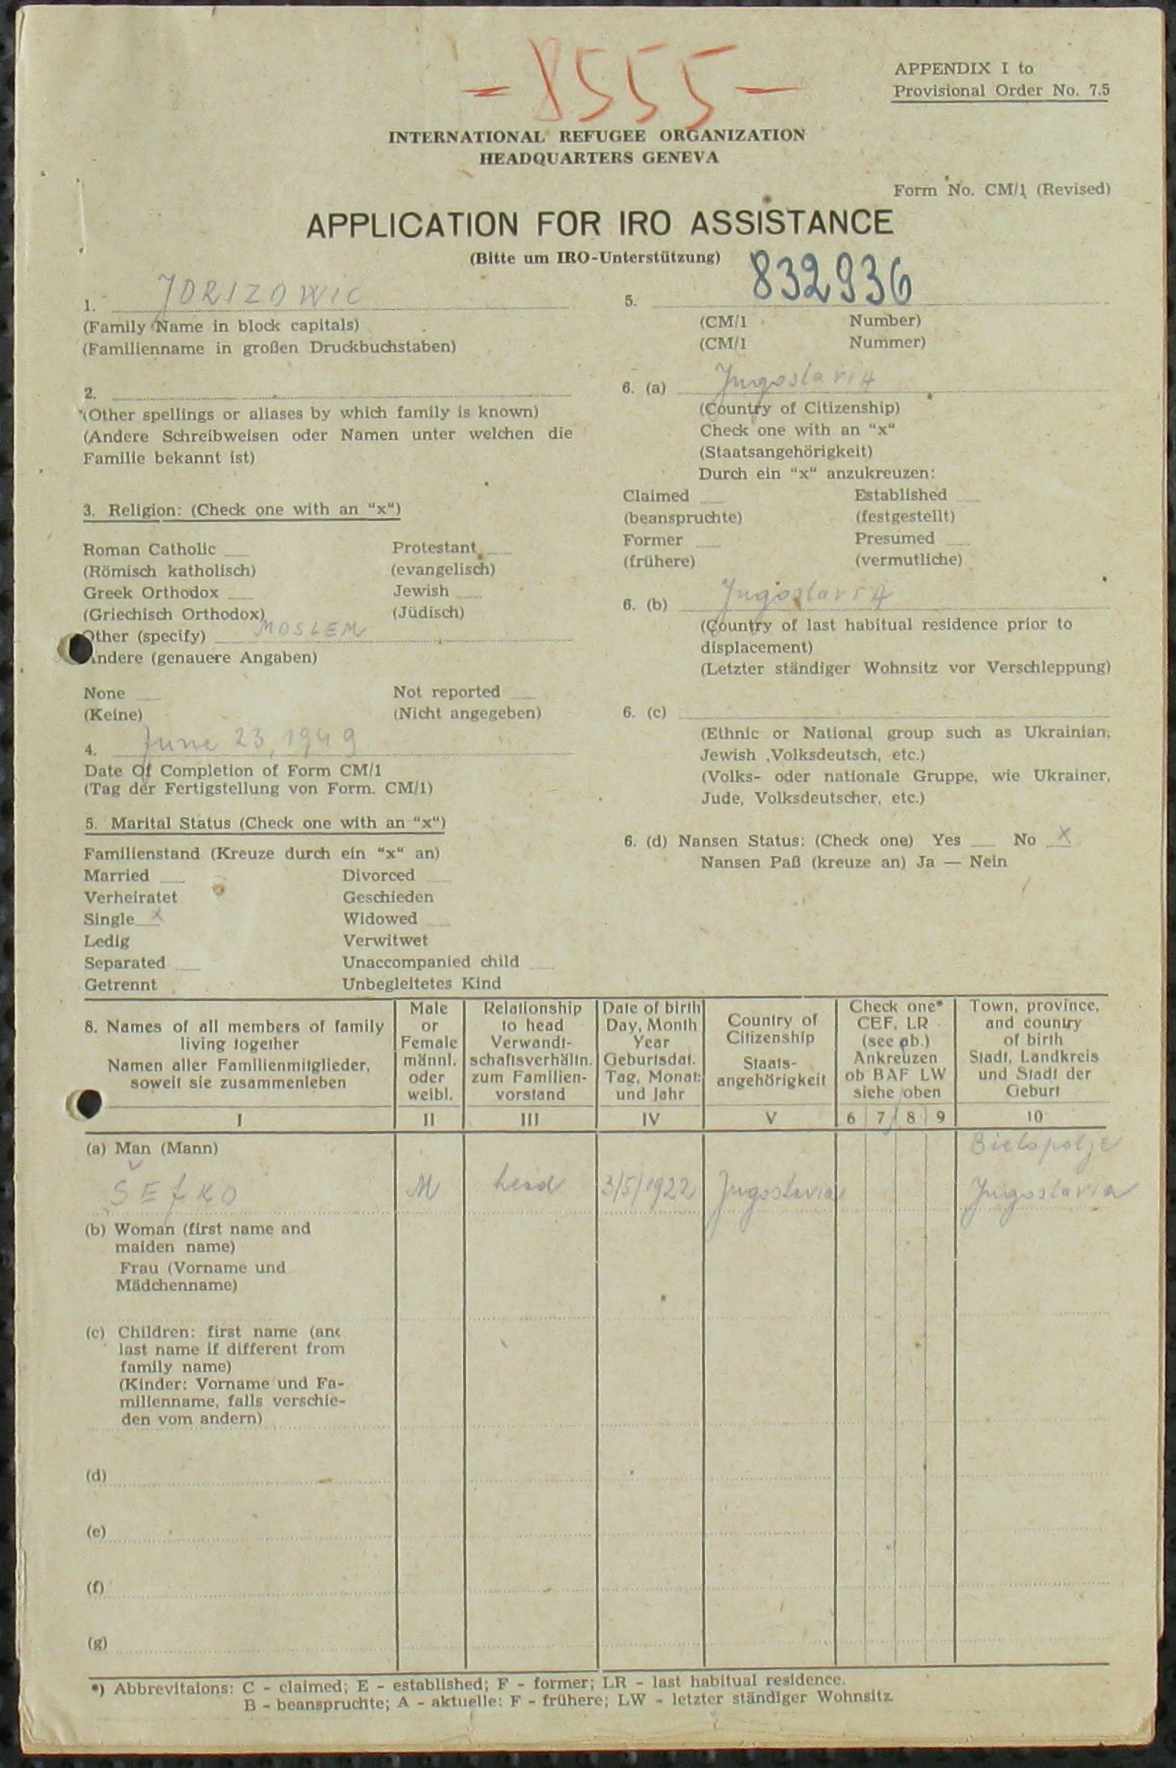 -8555-
APPENDIX I to
Provisional Order No. 7.5
INTERNATIONAL REFUGEE ORGANIZATION
HEADQUARTERS GENEVA
Form No. CM/1 (Revised)
APPLICATION FOR IRO ASSISTANCE
(Bitte um IRO-Unterstützung)
1. JORIZOWIC
(Family Name in block capitals)
(Familienname in großen Druckbuchstaben)
2.
(Other spellings or aliases by which family is known)
(Andere Schreibweisen oder Namen unter welchen die
Familie bekannt ist)
3. Religion: (Check one with an "x")
Roman Catholic Protestant
(Römisch katholisch) (evangelisch)
Greek Orthodox Jewish
(Griechisch Orthodox) (Jüdisch)
Other (specify) MOSLEM
Andere (genauere Angaben)
None Not reported
(Keine) (Nicht angegeben)
4. June 23, 1949
Date Of Completion of Form CM/1
(Tag der Fertigstellung von Form. CM/1)
5. Marital Status (Check one with an "x")
Familienstand (Kreuze durch ein "x" an)
Married Divorced
Verheiratet Geschieden
Single x Widowed
Ledig Verwitwet
Separated Unaccompanied child
Getrennt Unbegleitetes Kind
5. 832936
(CM/1 Number)
(CM/1 Nummer)
6. (a) Jugoslavia
(Country of Citizenship)
Check one with an "x"
(Staatsangehörigkeit)
Durch ein "x" anzukreuzen:
Claimed Established
(beanspruchte) (festgestellt)
Former Presumed
(frühere) (vermutliche)
6. (b) Jugoslavia
(Country of last habitual residence prior to
displacement)
(Letzter ständiger Wohnsitz vor Verschleppung)
6. (c)
(Ethnic or National group such as Ukrainian,
Jewish ,Volksdeutsch, etc.)
(Volks- oder nationale Gruppe, wie Ukrainer,
Jude, Volksdeutscher, etc.)
6. (d) Nansen Status: (Check one) Yes No X
Nansen Paß (kreuze an) Ja — Nein
8. Names of all members of family
living together
Namen aller Familienmitglieder,
soweit sie zusammenleben
Male
or
Female
männl.
oder
weibl.
Relationship
to head
Verwandt-
schaftsverhältn.
zum Familien-
vorstand
Date of birth
Day, Month
Year
Geburtsdat.
Tag, Monat:
und Jahr
Country of
Citizenship
Staats-
angehörigkeit
Check one*
CEF, LR
(see ob.)
Ankreuzen
ob BAF LW
siehe oben
Town, province,
and country
of birth
Stadt, Landkreis
und Stadt der
Geburt
I II III IV V 6 7 8 9 10
(a) Man (Mann) Bielopolje
ŠEfKO M head 3/5/1922 Jugoslavia Jugoslavia
(b) Woman (first name and
maiden name)
Frau (Vorname und
Mädchenname)
(c) Children: first name (and
last name if different from
family name)
(Kinder: Vorname und Fa-
milienname, falls verschie-
den vom andern)
(d)
(e)
(f)
(g)
*) Abbrevitaions: C - claimed; E - established; F - former; LR - last habitual residence.
B - beanspruchte; A - aktuelle: F - frühere; LW - letzter ständiger Wohnsitz